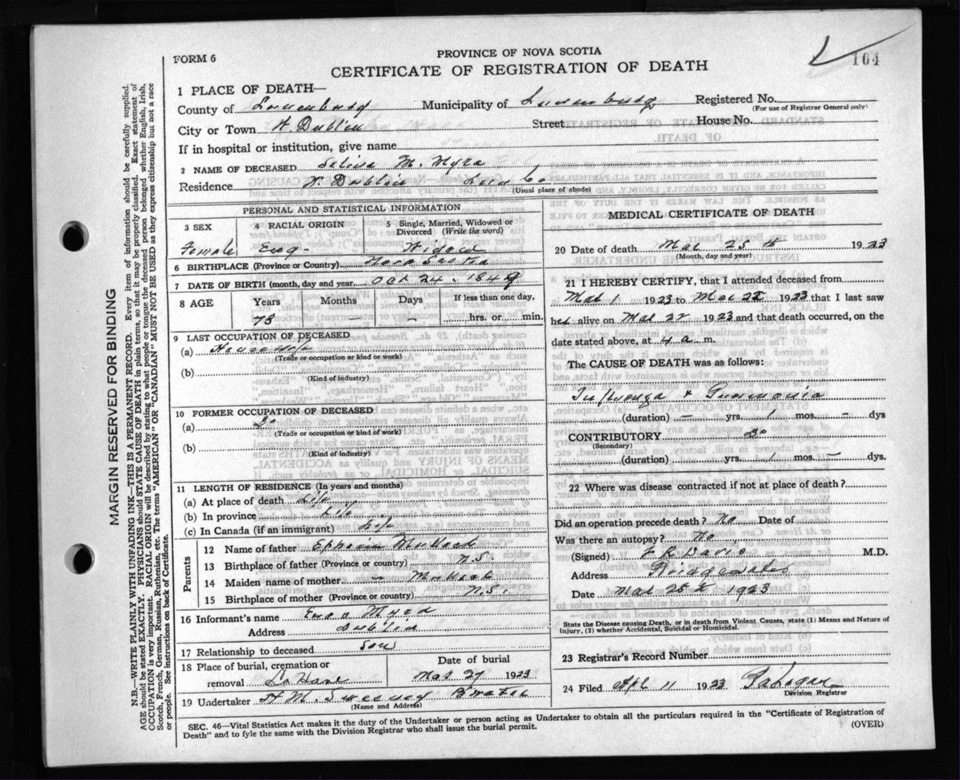 164
FORM 6
PROVINCE OF NOVA SCOTIA
CERTIFICATE OF REGISTRATION OF DEATH
1 PLACE OF DEATH—
County of Lunenburg Municipality of Lunenburg Registered No.
(For use of Registrar General only)
City or Town W. Dublin Street House No.
If in hospital or institution, give name
2 NAME OF DECEASED M. Myra
Residence W. Dublin Lun Co
(Usual place of abode)
PERSONAL AND STATISTICAL INFORMATION
3 SEX 4 RACIAL ORIGIN 5 Single, Married, Widowed or Divorced (Write the word)
Female Eng Widow
6 BIRTHPLACE (Province or Country) Nova Scotia
7 DATE OF BIRTH (month, day and year) Oct 24 - 1849
8 AGE Years Months Days If less than one day,
73 — — hrs. or min.
9 LAST OCCUPATION OF DECEASED
(a) Housewife
(Trade or occupation or kind or work)
(b)
(Kind of industry)
10 FORMER OCCUPATION OF DECEASED
(a) Do
(Trade or occupation or kind of work)
(b)
(Kind of industry)
11 LENGTH OF RESIDENCE (In years and months)
(a) At place of death Life
(b) In province Life
(c) In Canada (if an immigrant) Life
Parents
12 Name of father Ephraim
13 Birthplace of father (Province or country) N.S.
14 Maiden name of mother —
15 Birthplace of mother (Province or country) N.S.
16 Informant's name Myra
Address Dublin
17 Relationship to deceased son
18 Place of burial, cremation or removal LaHave
Date of burial Mar 27 1923
19 Undertaker H M Sweeney
(Name and Address)
MEDICAL CERTIFICATE OF DEATH
20 Date of death Mar 25 th 1923
(Month, day and year)
21 I HEREBY CERTIFY, that I attended deceased from
Mar 1 1923 to Mar 22 1923 that I last saw
her alive on Mar 22 1923 and that death occurred, on the
date stated above, at 4 a m.
The CAUSE OF DEATH was as follows:
Influenza & Pneumonia
(duration) — yrs. 1 mos. — dys
CONTRIBUTORY Do
(Secondary)
(duration) yrs. 1 mos. — dys.
22 Where was disease contracted if not at place of death?
Did an operation precede death? No Date of
Was there an autopsy? No
(Signed) F R Davis M.D.
Address Bridgewater
Date Mar 25th 1923
State the Disease causing Death, or in death from Violent Causes, state (1) Means and Nature of
Injury, (2) whether Accidental, Suicidal or Homicidal.
23 Registrar's Record Number
24 Filed Apr 11 1923
Division Registrar
SEC. 46—Vital Statistics Act makes it the duty of the Undertaker or person acting as Undertaker to obtain all the particulars required in the "Certificate of Registration of
Death" and to fyle the same with the Division Registrar who shall issue the burial permit.
(OVER)
MARGIN RESERVED FOR BINDING
N.B.—WRITE PLAINLY WITH UNFADING INK—THIS IS A PERMANENT RECORD. Every item of information should be carefully supplied.
AGE should be stated EXACTLY. PHYSICIANS should STATE CAUSE OF DEATH in plain terms, so that it may be properly classified. Exact statement of
OCCUPATION is very important. RACIAL ORIGIN will be described by stating to what people or tongue the deceased person belonged, whether English, Irish,
Scotch, French, German, Russian, Ruthenian, etc. The terms "AMERICAN" or "CANADIAN" MUST NOT BE USED as they express citizenship but not a race
or people. See instructions on back of Certificate.